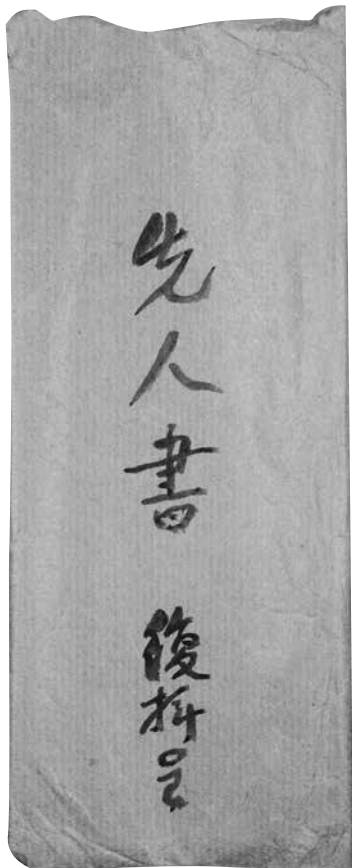 先人書 復拜呈